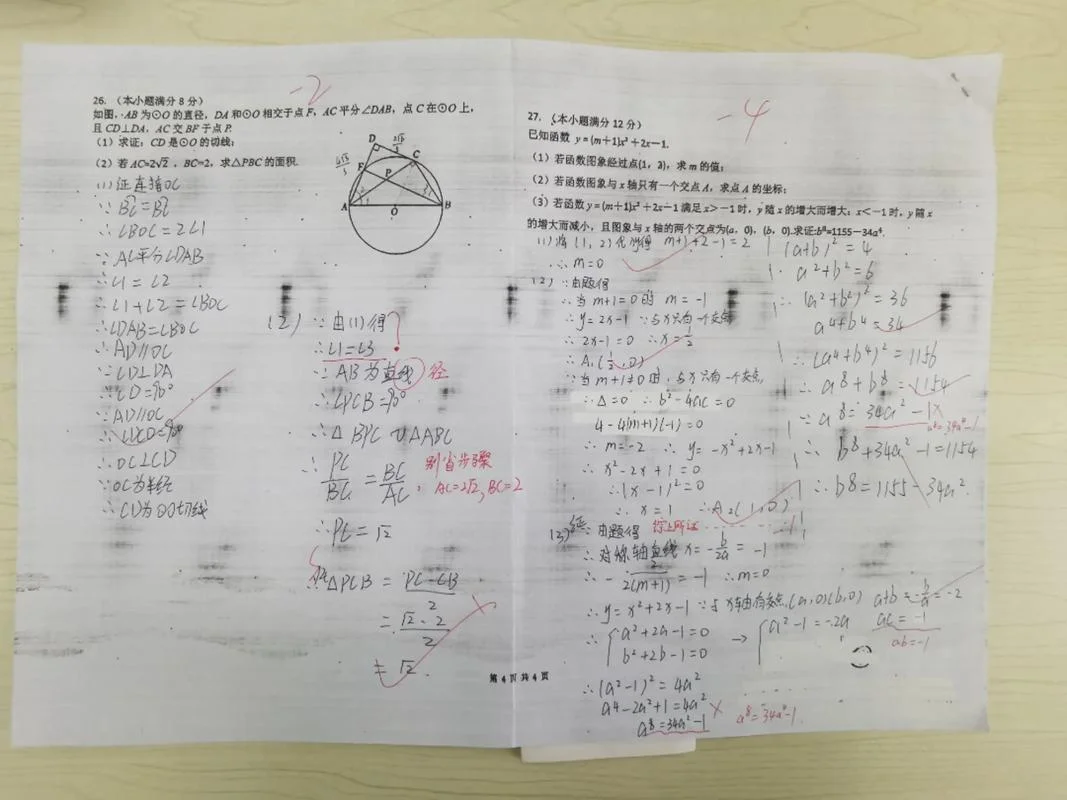 -2
26. (本小题满分8分)
如图, AB为⊙O的直径, DA和⊙O相交于点F, AC平分∠DAB, 点C在⊙O上,
且CD⊥DA, AC交BF于点P.
(1) 求证: CD是⊙O的切线;
(2) 若AC=2√2, BC=2, 求△PBC的面积.
D
C
F
P
A
O
B
(1) 证连接OC
∵ BC=BC
∴ ∠BOC=2∠1
∵ AC平分∠DAB
∴ ∠1=∠2
∴ ∠1+∠2=∠BOC
∴ ∠DAB=∠BOC
∴ AD∥OC
∵ CD⊥DA
∴ ∠D=90°
∵ AD∥OC
∴ ∠DCO=90°
∴ OC⊥CD
∵ OC为半径
∴ CD为⊙O切线
(2) ∵ 由(1)得 ?
∴ ∠1=∠3
∵ AB为直线 径
∴ ∠PCB=90°
∴ △BPC∽△ABC
∴ PC/BC = BC/AC
别省步骤
AC=2√2, BC=2
∴ PC=√2
△PCB = PC·CB/2
= √2·2/2
= √2.
第4页共4页
-4
27. (本小题满分12分)
已知函数 y=(m+1)x²+2x-1.
(1) 若函数图象经过点(1, 2), 求m的值;
(2) 若函数图象与x轴只有一个交点A, 求点A的坐标;
(3) 若函数y=(m+1)x²+2x-1满足x>-1时, y随x的增大而增大; x<-1时, y随x
的增大而减小, 且图象与x轴的两个交点为(a, 0), (b, 0).求证:b⁸=1155-34a⁴.
(1) 将(1, 2)代入得 m+1+2-1=2
∴ m=0
(2) ∵由题得
∴ 当m+1=0时 m=-1
∴ y=2x-1 ∵与x只有一个交点
∴ 2x-1=0 ∴x=1/2
∴ A₁(1/2, 0)
∵ 当m+1≠0时, 与x只有一个交点,
∴ △=0 ∴ b²-4ac=0
4-4(m+1)(-1)=0
∴ m=-2 ∴ y=-x²+2x-1
∴ x²-2x+1=0
∴ (x-1)²=0
∴ x=1 ∴A₂(1, 0)
综上所述
(3) ∵由题得
∴ 对称轴直线x=-b/2a=-1
∴ -2/2(m+1)=-1 ∴m=0
∴ y=x²+2x-1 ∵与x轴有交点(a,0)(b,0) a+b=-b/a=-2
∴ {a²+2a-1=0 → {a²-1=-2a ac=-1
b²+2b-1=0
ab=-1
∴ (a²-1)²=4a²
a⁴-2a²+1=4a²
a⁸=34a²-1
a⁸=34a⁴-1
(a+b)²=4
a²+b²=6
∴ (a²+b²)²=36
a⁴+b⁴=34
∴ (a⁴+b⁴)²=1156
∴ a⁸+b⁸=1154
∵ a⁸=34a²-1
a⁸=34a⁴-1
∴ b⁸+34a²-1=1154
∴ b⁸=1155-34a².